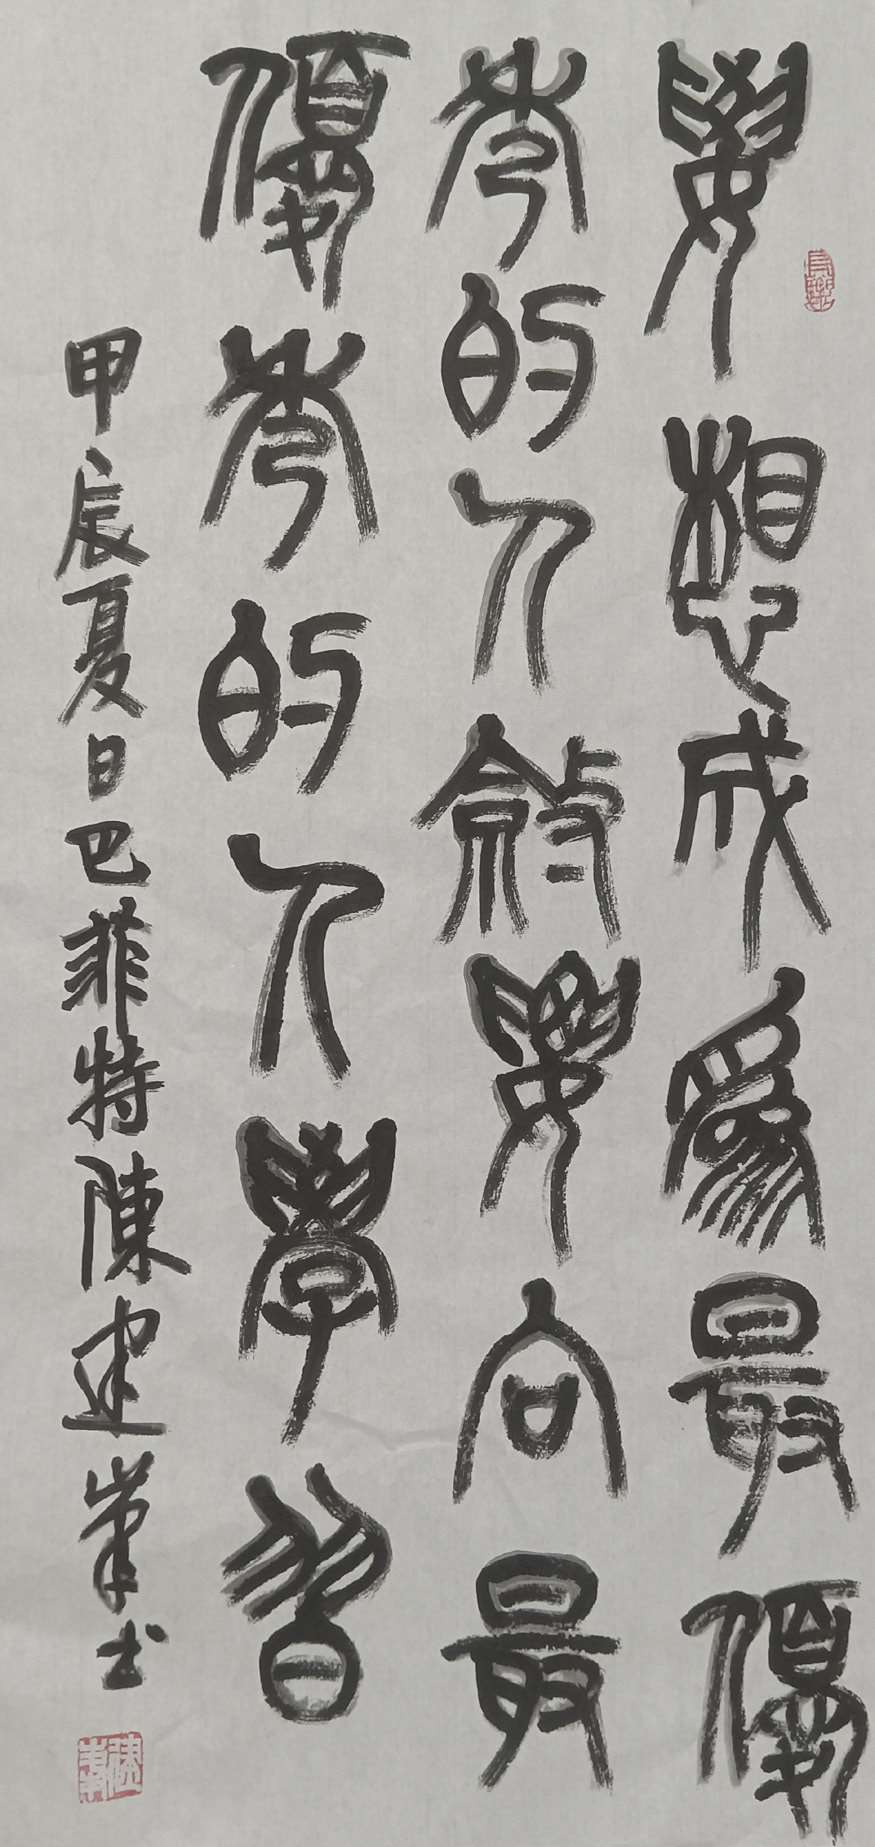 要想成為最優
秀的人就要向最
優秀的人學習
甲辰夏日巴菲特陳建書
長樂